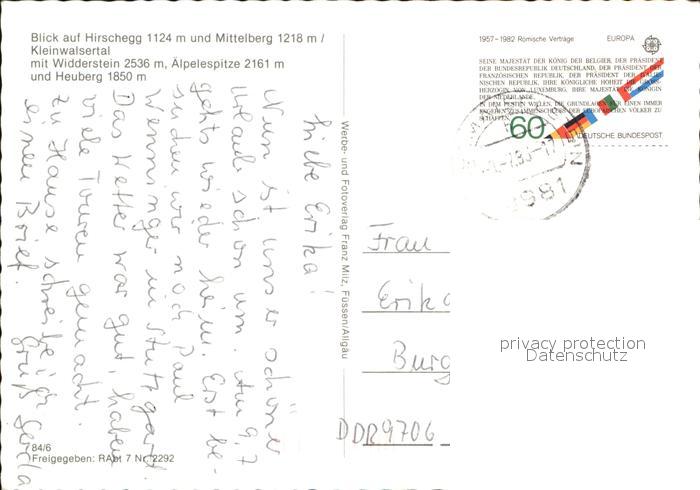 Blick auf Hirschegg 1124 m und Mittelberg 1218 m /
Kleinwalsertal
mit Widderstein 2536 m, Älpelespitze 2161 m
und Heuberg 1850 m
Liebe Erika!
Nun ist unser schöner
Urlaub schon um. Am 9.7
gehts wieder heim. Erst be-
suchen wir noch Paul
Wenninger in Stuttgart.
Das Wetter war gut, haben
viele Touren gemacht.
Zu Hause schreibe ich
einen Brief. Gruß Gerda
84/6
Freigegeben: RAbt 7 Nr. 2292
Werbe- und Fotoverlag Franz Milz, Füssen/Allgäu
1957–1982 Römische Verträge EUROPA
SEINE MAJESTÄT DER KÖNIG DER BELGIER, DER PRÄSIDENT
DER BUNDESREPUBLIK DEUTSCHLAND, DER PRÄSIDENT DER
FRANZÖSISCHEN REPUBLIK, DER PRÄSIDENT DER ITALIE-
NISCHEN REPUBLIK, IHRE KÖNIGLICHE HOHEIT DIE GROSS-
HERZOGIN VON LUXEMBURG, IHRE MAJESTÄT DIE KÖNIGIN
DER NIEDERLANDE
IN DEM FESTEN WILLEN, DIE GRUNDLAGEN FÜR EINEN IMMER
ENGEREN ZUSAMMENSCHLUSS DER EUROPÄISCHEN VÖLKER ZU
SCHAFFEN
60
DEUTSCHE BUNDESPOST
Frau
Erika
Burg
DDR 9706
privacy protection
Datenschutz